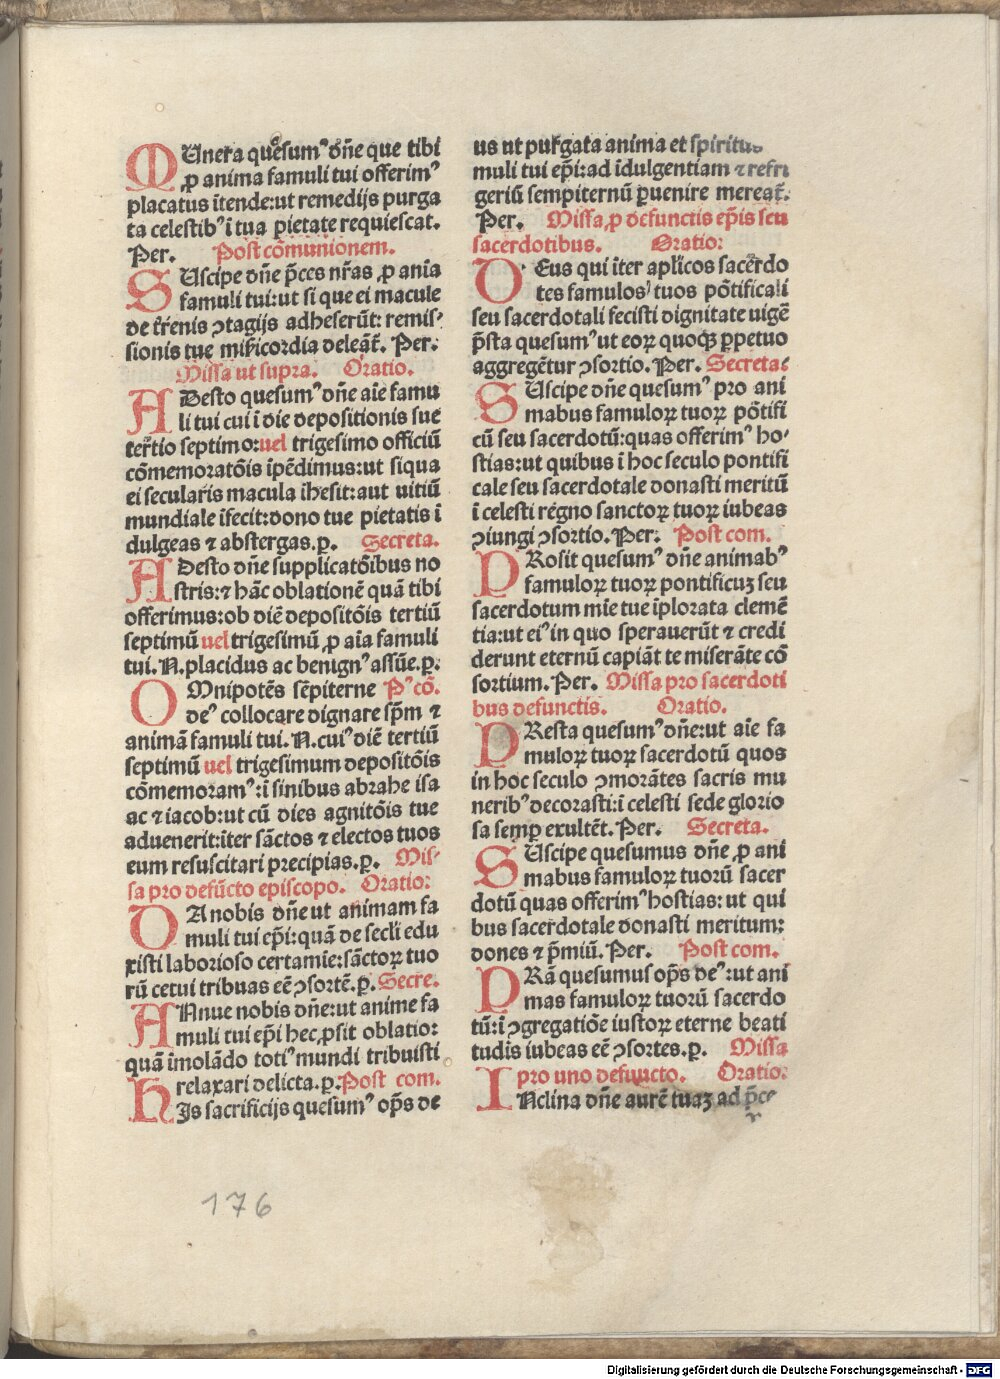 MUnera quesumꝰ dñe que tibi
ꝓ anima famuli tui offerimꝰ
placatus ītende:ut remedijs purga
ta celestibꝰ ī tua pietate requiescat.
Per. Post cōmunionem.
SUscipe dñe p̄ces nr̄as ꝓ aīa
famuli tui:ut si que ei macule
de t̄renis ꝯtagijs adheserūt: remis⸗
sionis tue miṡicordia deleāt̄. Per.
Missa ut supra. Oratio.
ADesto quesumꝰ dñe aīe famu
li tui cui ī die depositionis sue
tertio septimo:uel trigesimo officiū
cōmemoratōis īpēdimus:ut siqua
ei secularis macula īhesit:aut uitiū
mundiale īfecit:dono tue pietatis ī
dulgeas ⁊ abstergas.p̱. Secreta.
ADesto dñe supplicatōibus no
stris:⁊ hāc oblationē quā tibi
offerimus:ob diē depositōis tertiū
septimū uel trigesimū ꝓ aīa famuli
tui.N.placidus ac benignꝰ assūe.p̱.
OMnipotēs sēpiterne Pꝰ cō.
deꝰ collocare dignare sp̄m ⁊
animā famuli tui.N.cuiꝰ diē tertiū
septimū uel trigesimum depositōis
cōmemoramꝰ:ī sinibus abrahe isa
ac ⁊ iacob:ut cū dies agnitōis tue
aduenerit:īter sāctos ⁊ electos tuos
eum resuscitari precipias.p̱. Mis⸗
sa pro defūcto episcopo. Oratio:
DA nobis dñe ut animam fa
muli tui ep̄i:quā de secli edu
xisti laborioso certamīe:sāctoꝝ tuo
rū cetui tribuas eē̄ ꝯsortē.p̱. Secre.
ANnue nobis dñe:ut anime fa
muli tui ep̄i hec ꝓsit oblatio:
quā īmolādo totiꝰ mundi tribuisti
relaxari delicta.p̱.Post com.
HJs sacrificijs quesumꝰ op̄s de
us ut purgata anima et spiritus
muli tui ep̄i:ad īdulgentiam ⁊ refri
geriū sempiternū ꝑuenire mereat̄.
Per. Missa ꝓ defunctis ep̄is seu
sacerdotibus. Oratio:
DEus qui īter apl̄icos sacerdo
tes famulos tuos pōtificali
seu sacerdotali fecisti dignitate uigē̄
p̄sta quesumꝰ ut eoꝝ quoqꝫ ꝑpetuo
aggregētur ꝯsortio. Per. Secreta
SUscipe dñe quesumꝰ pro ani
mabus famuloꝝ tuoꝝ pōtifi
cū seu sacerdotū:quas offerimꝰ ho⸗
stias:ut quibus ī hoc seculo pontifi
cale seu sacerdotale donasti meritū
ī celesti regno sanctoꝝ tuoꝝ iubeas
ꝯiungi ꝯsortio. Per. Post com.
PRosit quesumꝰ dñe animabꝰ
famuloꝝ tuoꝝ pontificuꝫ seu
sacerdotum mīe tue īplorata clemē
tia:ut eiꝰ in quo sperauerūt ⁊ credi
derunt eternū capiāt te miserāte cō
sortium. Per. Missa pro sacerdoti
bus defunctis. Oratio.
PResta quesumꝰ dñe:ut aīe fa
muloꝝ tuoꝝ sacerdotū quos
in hoc seculo ꝯmorātes sacris mu
neribꝰ decorasti:ī celesti sede glorio
sa semꝑ exultēt. Per. Secreta.
SUscipe quesumus dñe ꝓ ani
mabus famuloꝝ tuorū sacer
dotū quas offerimꝰ hostias: ut qui
bus sacerdotale donasti meritum:
dones ⁊ p̄miū. Per. Post com.
PRā quesumus op̄s deꝰ:ut ani
mas famuloꝝ tuorū sacerdo
tū:ī ꝯgregatiōe iustoꝝ eterne beati
tudis iubeas eē̄ ꝯsortes.p̱. Missa
pro uno defuncto. Oratio:
INclina dñe aurē tuaꝫ ad p̄ce
176
Digitalisierung gefördert durch die Deutsche Forschungsgemeinschaft - DFG